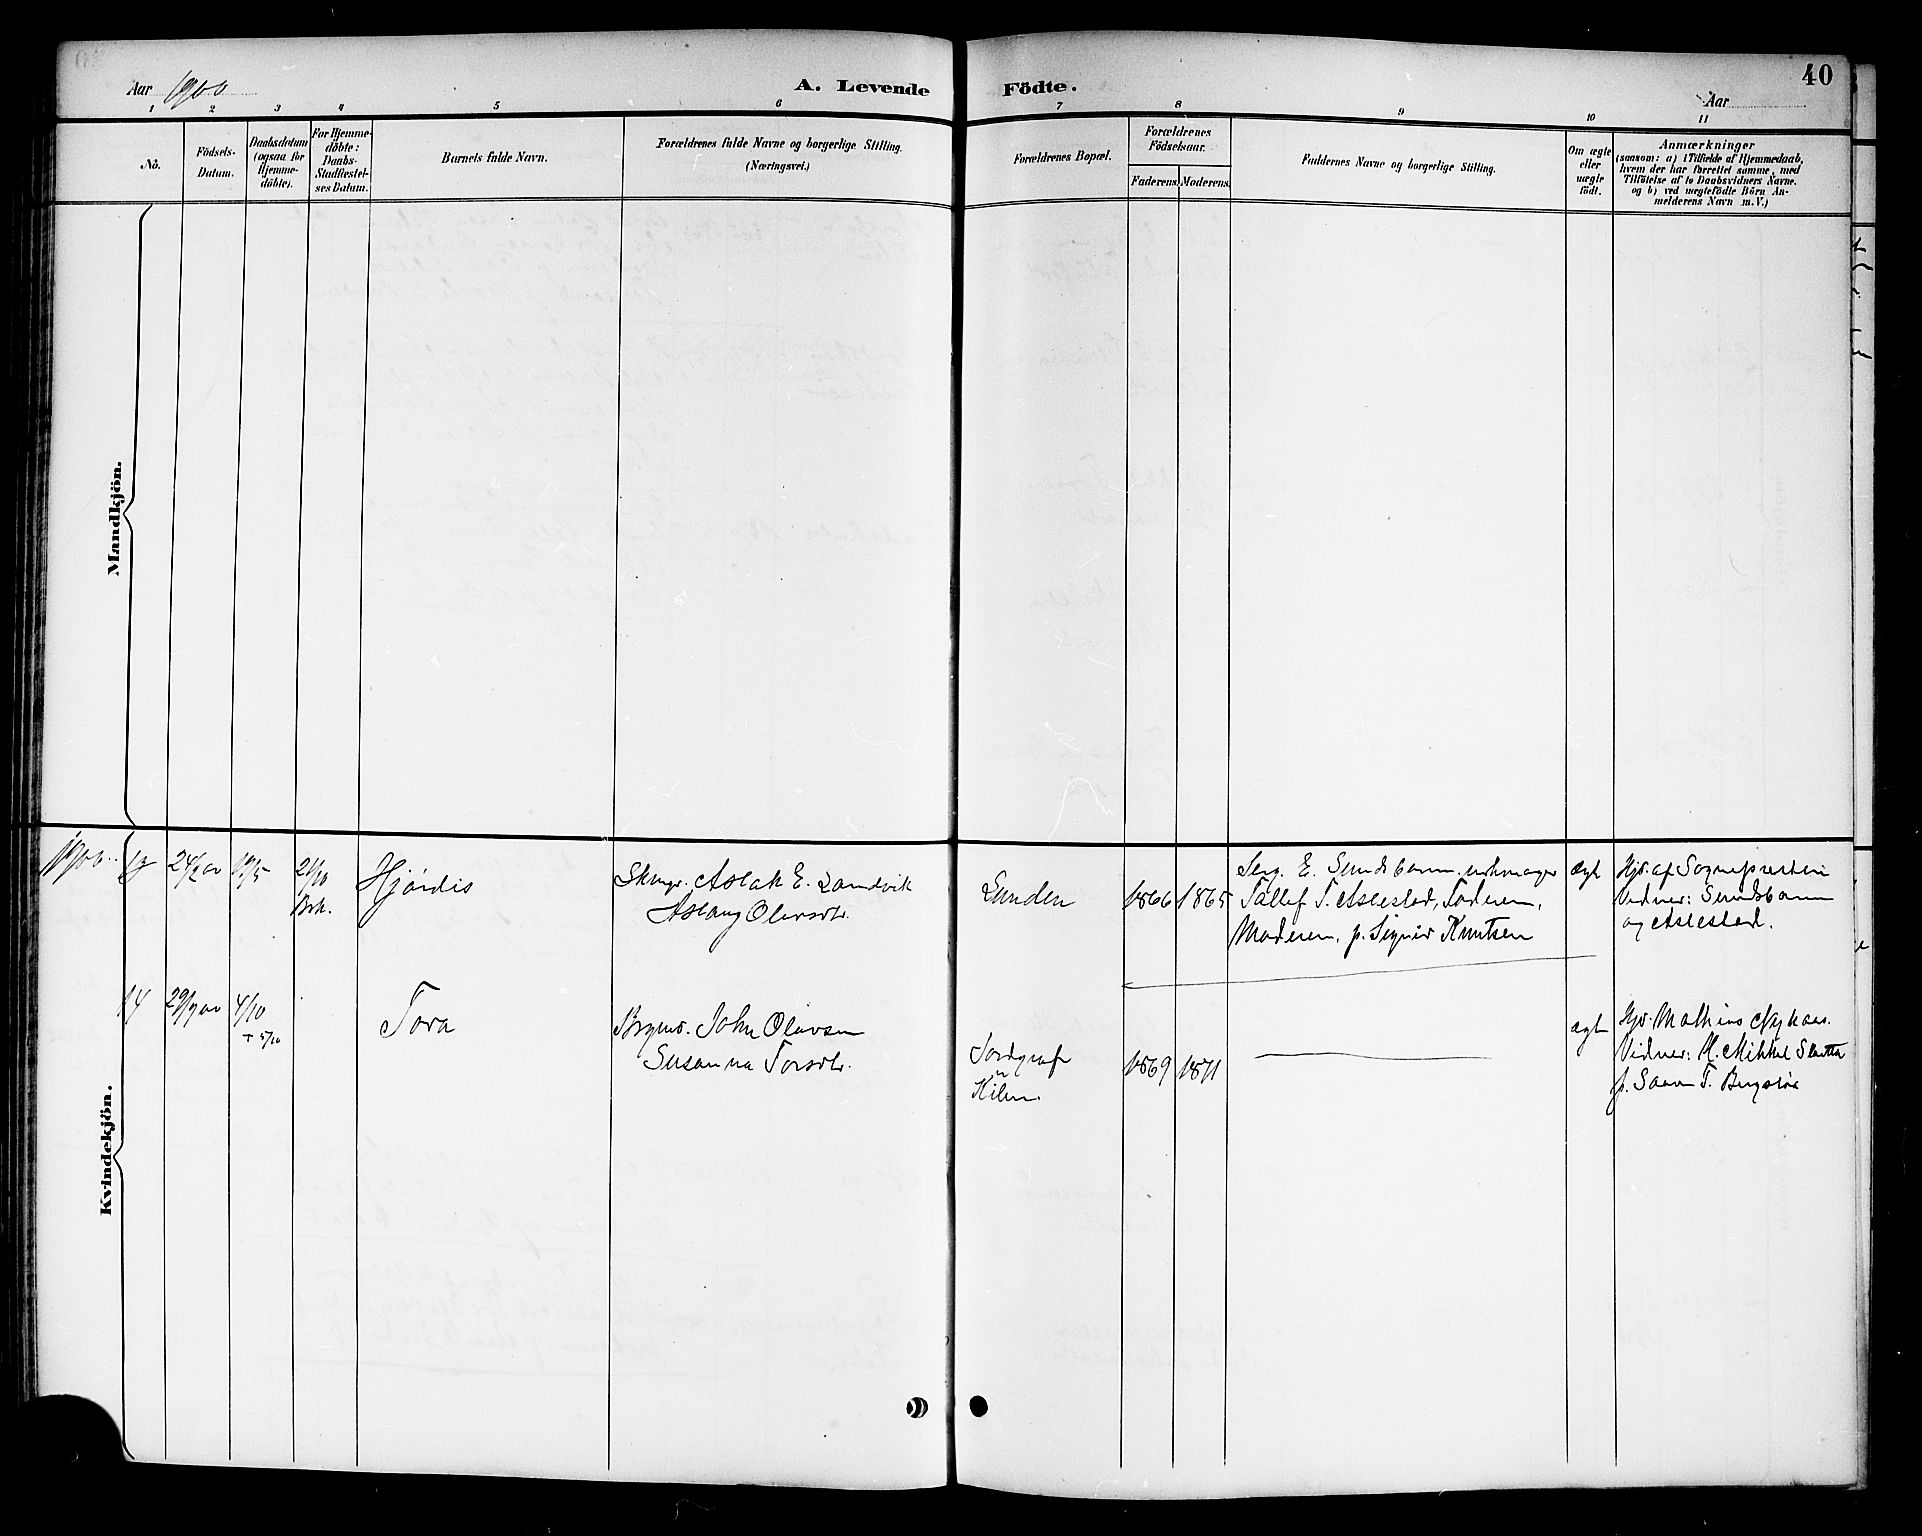 Aar 1900
A. Levende Födte.
40
Aar
1 2 3 4 5 6 7 8 9 10 11
No.
Födsels-
Datum.
Daabsdatum
(ogsaa for
Hjemme-
döbte).
For Hjemme-
döbte:
Daabs-
Stadfæstel-
ses Datum.
Barnets fulde Navn.
Forældrenes fulde Navne og borgerlige Stilling.
(Næringsvei.)
Forældrenes Bopæl.
Forældrenes
Födselsaar.
Faderens. Moderens.
Faddernes Navne og borgerlige Stilling.
Om ægte
eller
uægte
födt.
Anmærkninger
(saasom: a) i Tilfælde af Hjemmedaab,
hvem der har forrettet samme, med
Tilföielse af to Daabsvidners Navne.
og b) ved uægtefödte Börn An-
melderens Navn m. V.)
Mandkjön.
Kvindekjön.
1900
13
24/2 00
19/5
21/10
Brk.
Hjördis
Skmgr. Aslak E. Sandvik
Aslaug Olavsdtr.
Lunden
1866
1865
Serg. E. Sundsbarm, urkmager
Tallef T. Aslestad, Faderen,
Moderen, p. Signid Knutsen
ægt
Hjd. af Sognepresten
Vidner: Sundsbarm
og Aslestad.
14
29/9 00
4/10
+ 5/10
Tora
John Olavsen
Susanna Torsdtr.
Kilen.
1869
1871
ægt
Hjd. Mathias Nykaas.
Vidner: H. Mikkel Slaatta
p. T.